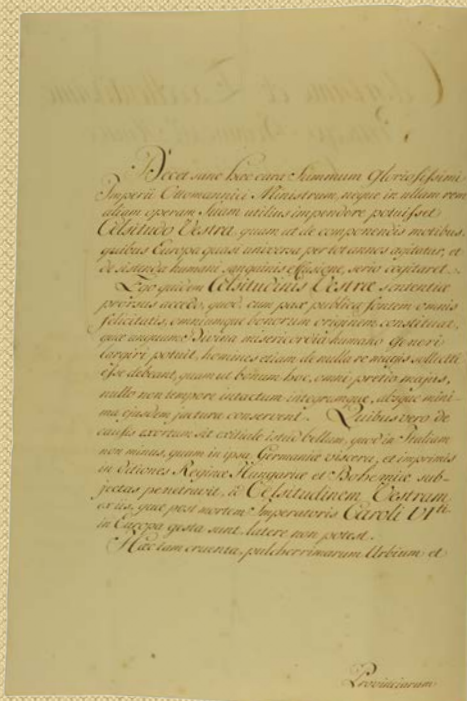 Decet sane haec cura Summum Gloriosissimi
Imperii Ottomannici Ministrum, neque in ullam rem
aliam operam Suam utilius impendere potuisset
Celsitudo Vestra, quam ut de componendis motibus,
quibus Europa quasi universa per tot annos agitatur, et
de sistenda humani sanguinis effusione, serio cogitaret.
Ego quidem Celsitudinis Vestrae sententiae
prorsus accedo, quod, cum pax publica fontem omnis
felicitatis, omniumque bonorum originem constituat,
quae unquam Divina misericordia humano Generi
largiri potuit, homines etiam de nulla re magis solliciti
esse debeant, quam ut bonum hoc, omni pretio majus,
nullo non tempore intactum integrumque, absque mini-
ma ejusdem jactura conservent. Quibus vero de
causis exortum sit exitiale istud bellum, quod in Italiam
non minus, quam in ipsa Germaniae viscera, et imprimis
in ditiones Reginae Hungariae et Bohemiae sub-
jectas penetravit, id Celsitudinem Vestram
ex iis, quae post mortem Imperatoris Caroli VIti
in Europa gesta sunt, latere non potest.
Haec tam cruenta, pulcherrimarum Urbium et
Provinciarum